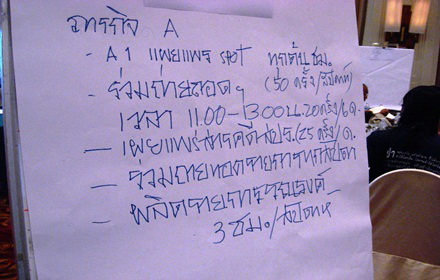 ภารกิจ A
- A1 เผยแพร่ spot ทุกต้น ชม.
(50 ครั้ง/สัปดาห์)
- ร่วมถ่ายทอดฯ
เวลา 11.00-13.00 น. 20 ครั้ง/ด.
- เผยแพร่สารคดีสปร. (25 ครั้ง/ด.
- ร่วมถ่ายทอดรายการ
- ผลิตรายการรณรงค์
3 ชม./สัปดาห์